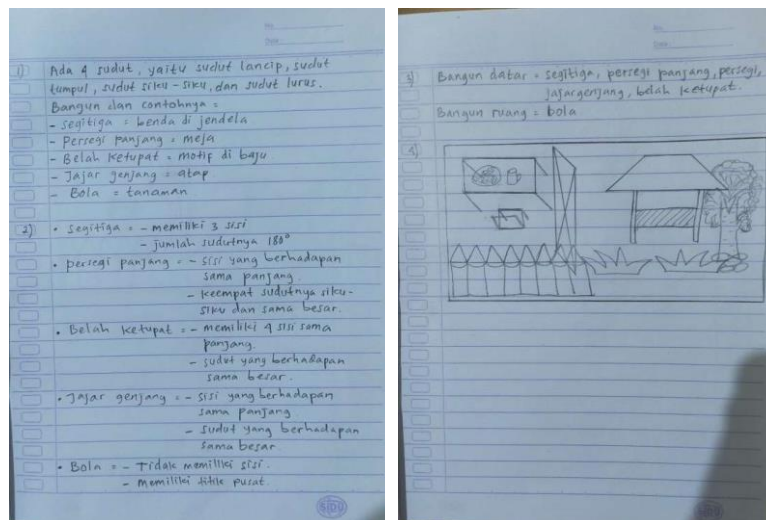 No.
Date.
1) Ada 4 sudut, yaitu sudut lancip, sudut
tumpul, sudut siku-siku, dan sudut lurus.
Bangun dan contohnya =
- segitiga = benda di jendela
- Persegi panjang = meja
- Belah ketupat = motif di baju
- Jajar genjang = atap
- Bola = tanaman
2) • segitiga = - memiliki 3 sisi
- jumlah sudutnya 180°
• persegi panjang = - sisi yang berhadapan
sama panjang.
- keempat sudutnya siku-
siku dan sama besar.
• Belah ketupat = - memiliki 4 sisi sama
panjang.
- sudut yang berhadapan
sama besar.
• Jajar genjang = - sisi yang berhadapan
sama panjang
- sudut yang berhadapan
sama besar.
• Bola = - Tidak memiliki sisi.
- memiliki titik pusat.
SIDU
No.
Date.
3) Bangun datar = segitiga, persegi panjang, persegi,
jajargenjang, belah ketupat.
Bangun ruang = bola
4)